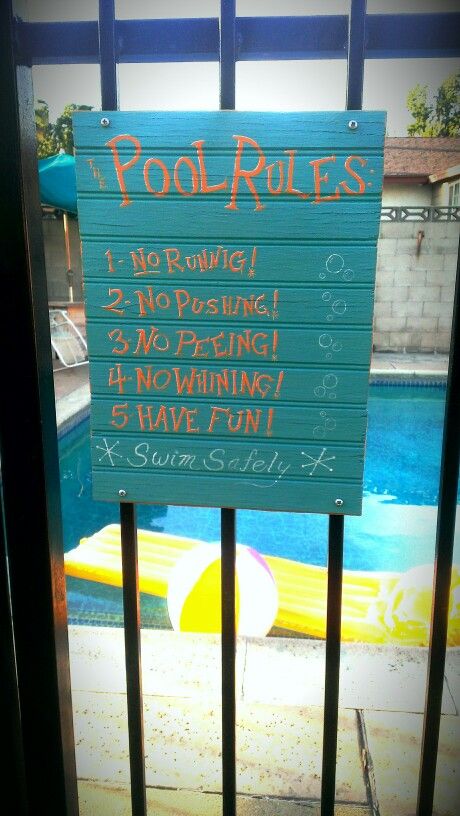 THE POOL RULES:
1- NO RUNNIG!
2- NO PUSHING!
3- NO PEEING!
4- NO WHINING!
5- HAVE FUN!
Swim Safely